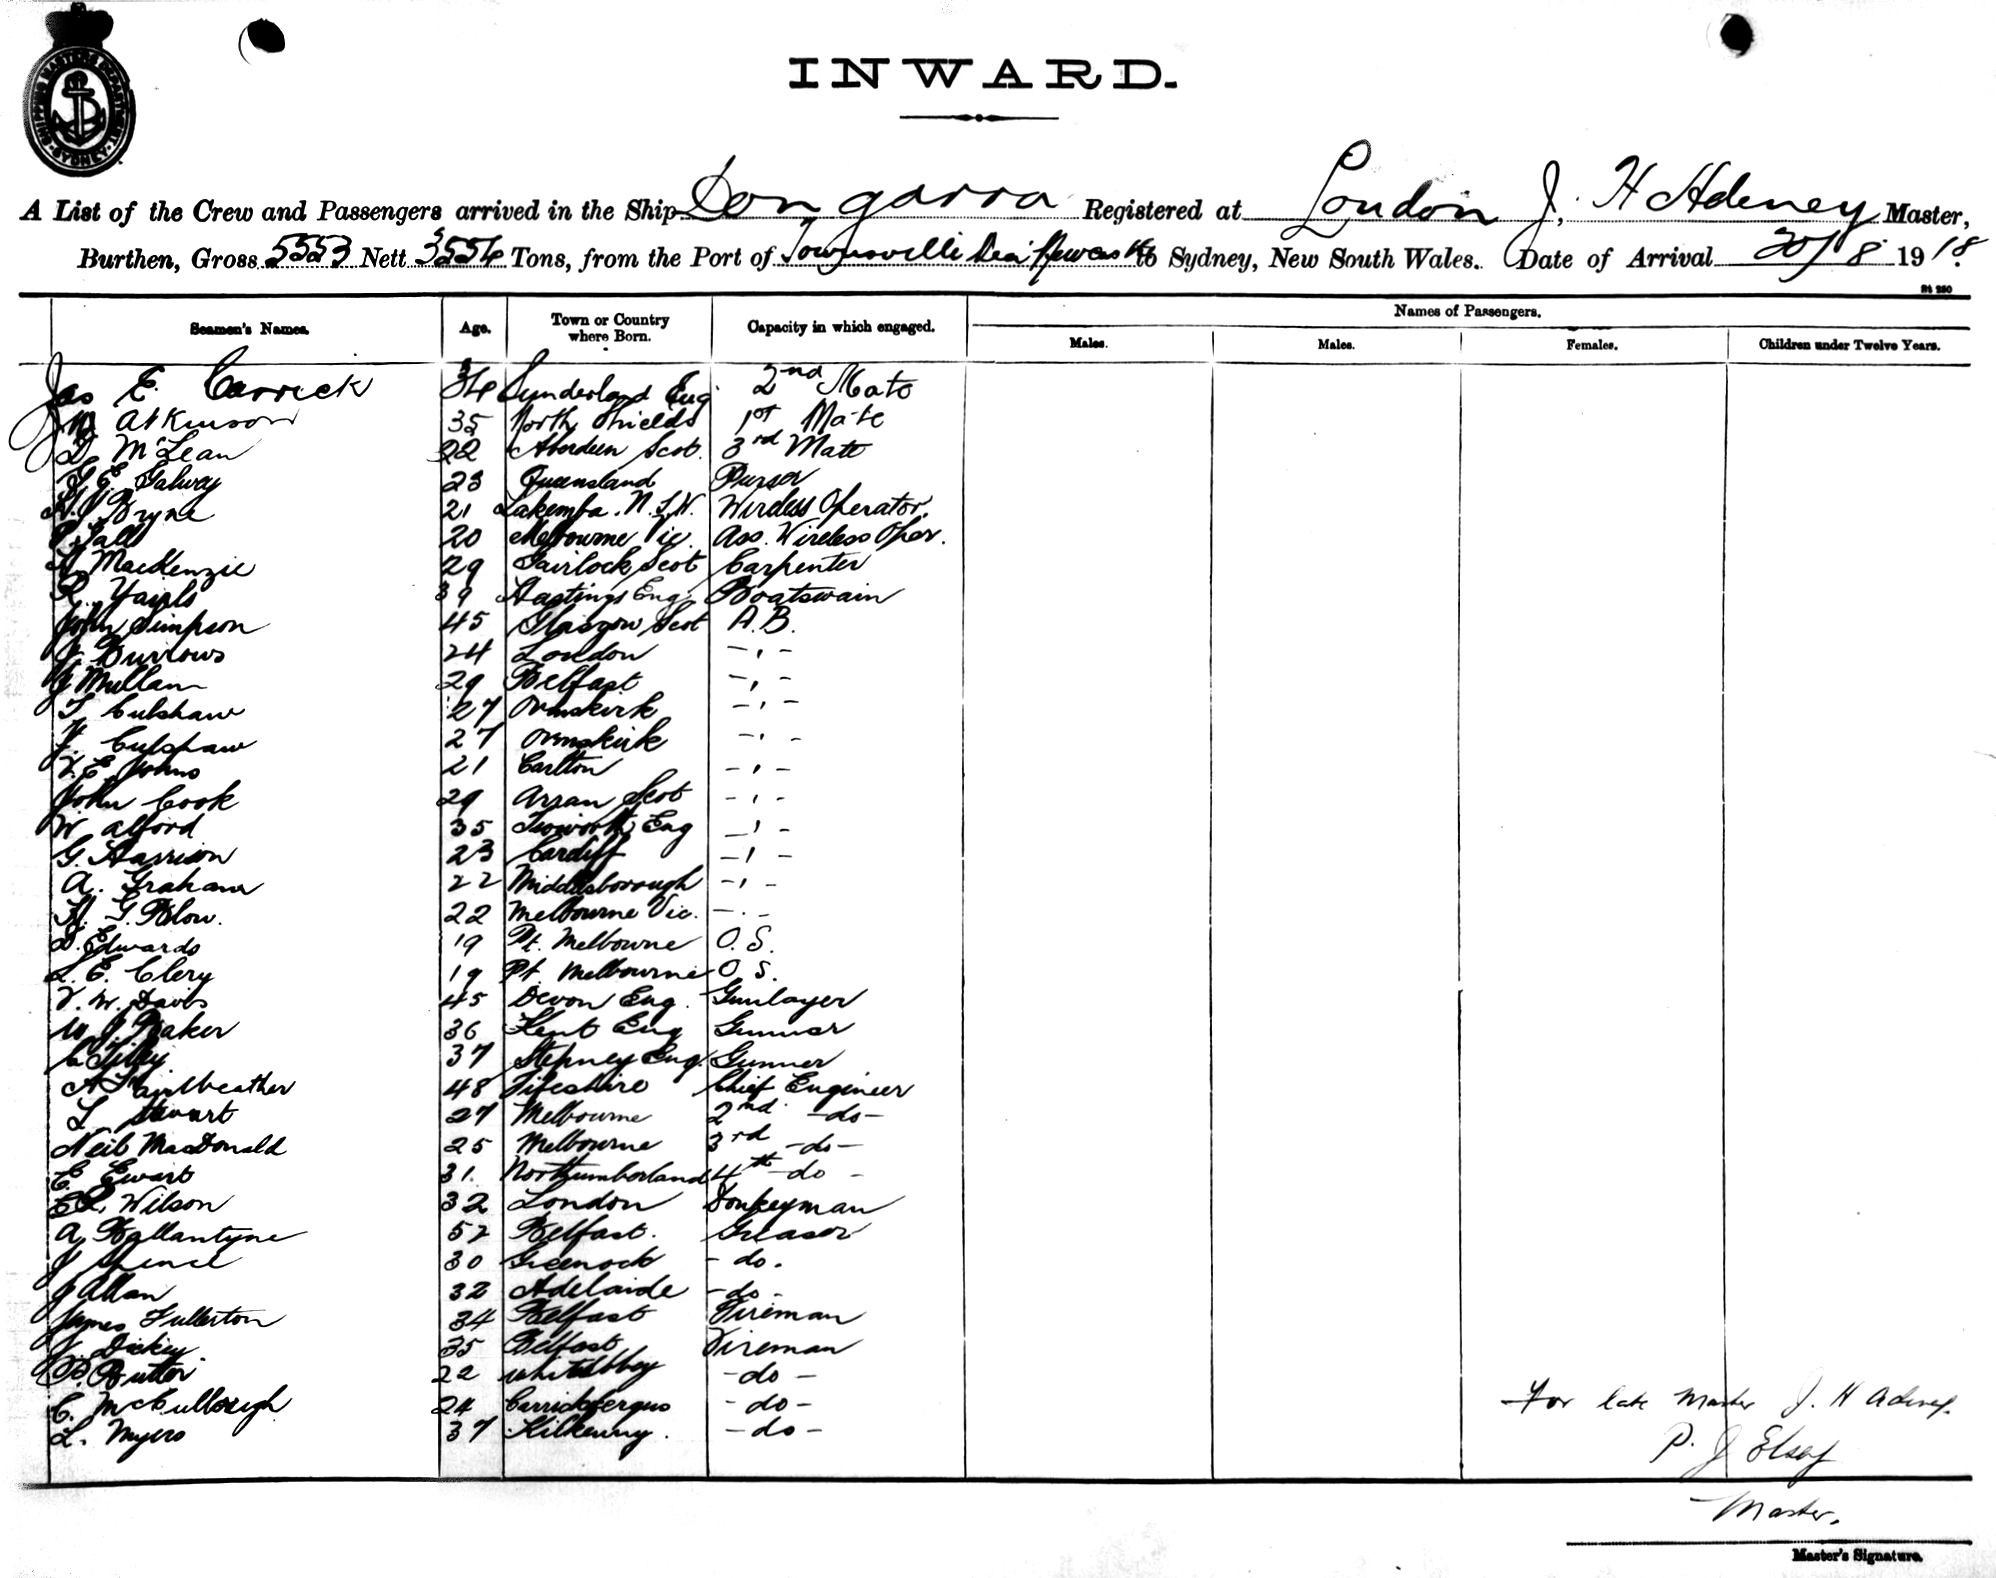 SHIPPING MASTERS DEPARTMENT SYDNEY
INWARD.
A List of the Crew and Passengers arrived in the Ship Dongarra Registered at London J. H Adeney Master,
Burthen, Gross 5553 Nett 3554 Tons, from the Port of Townsville to Sydney, New South Wales. Date of Arrival 20/8 1918.
Seamen's Names. Age. Town or Country where Born. Capacity in which engaged. Names of Passengers.
Males. Males. Females. Children under Twelve Years.
Jas E. Carrick 34 Sunderland Eng 2nd Mate
Atkinson 35 North Shields 1st Mate
D McLean 22 Aberdeen Scot. 3rd Mate
G E Galway 23 Queensland Purser
Bryne 21 Lakemba. N.S.W. Wireless Operator.
20 Melbourne Vic. Ass. Wireless Oper.
MacKenzie 29 Gairlock Scot Carpenter
R. 39 Hastings Eng Boatswain
John Simpson 45 Glasgow Scot A.B.
J. Burrows 24 London - , -
J Mullan 29 Belfast - , -
T Culshaw 27 Ormskirk - , -
J. Culshaw 27 Ormskirk - , -
V. E. Johns 21 Carlton - , -
John Cook 29 Arran Scot - , -
W Alford 35 Eng - , -
G. Harrison 23 Cardiff - , -
A. Graham 22 Middlesborough - , -
H. G. Blow. 22 Melbourne Vic. - . -
D. Edwards 19 Pt. Melbourne O. S.
L. E. Clery 19 Pt. Melbourne O. S.
V. W. Davis 45 Devon Eng. Gunlayer
W J Baker 36 Kent Eng Gunner
C Tilley 37 Stepney Eng. Gunner
A Fairweather 48 Fifeshire Chief Engineer
L. Stewart 27 Melbourne 2nd -do-
Neil MacDonald 25 Melbourne 3rd -do-
E. Ewart 31. Northumberland 4th -do-
Wilson 32 London Donkeyman
A Ballantyne 52 Belfast. Greaser
J Spence 30 Greenock - do.
J Allan 32 Adelaide -do-
James Fullerton 34 Belfast Fireman
J Dickey 35 Belfast Fireman
Butler 22 Whiteabbey -do-
C. McCullough 24 Carrickfergus -do-
L. Myers 37 Kilkenny. -do-
For late Master J. H Adeney.
P. J Elsey
Master.
Master's Signature.